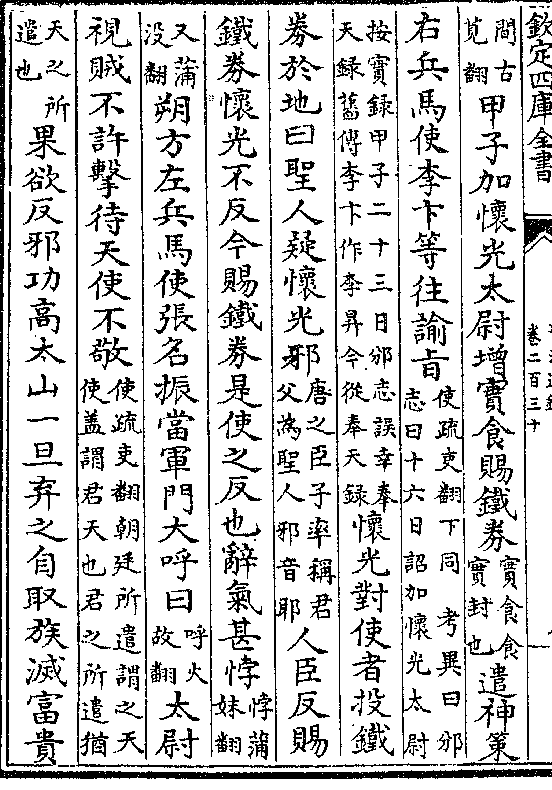 欽定四庫全書
卷二百三十
間古莧翻甲子加懷光太尉增實食賜鐵劵實食食實封也遣神策
右兵馬使李卞等往諭㫖使疏吏翻下同 考異曰邠志曰十六日詔加懷光太尉
按實錄甲子二十三日邠志誤幸奉天録舊傳李卞作李昇今從奉天録懷光對使者投鐵
劵於地曰聖人疑懷光邪唐之臣子率稱君父為聖人 邪音耶人臣反賜
鐵劵懷光不反今賜鐵劵是使之反也辭氣甚悖悖蒲妹翻
又蒲没翻朔方左兵馬使張名振當軍門大呼曰呼火故翻太尉
視賊不許擊待天使不敬使疏吏翻朝廷所遣謂之天使盖謂君天也君之所遣猶
天之所遣也果欲反邪功高太山一旦弃之自取族滅富貴